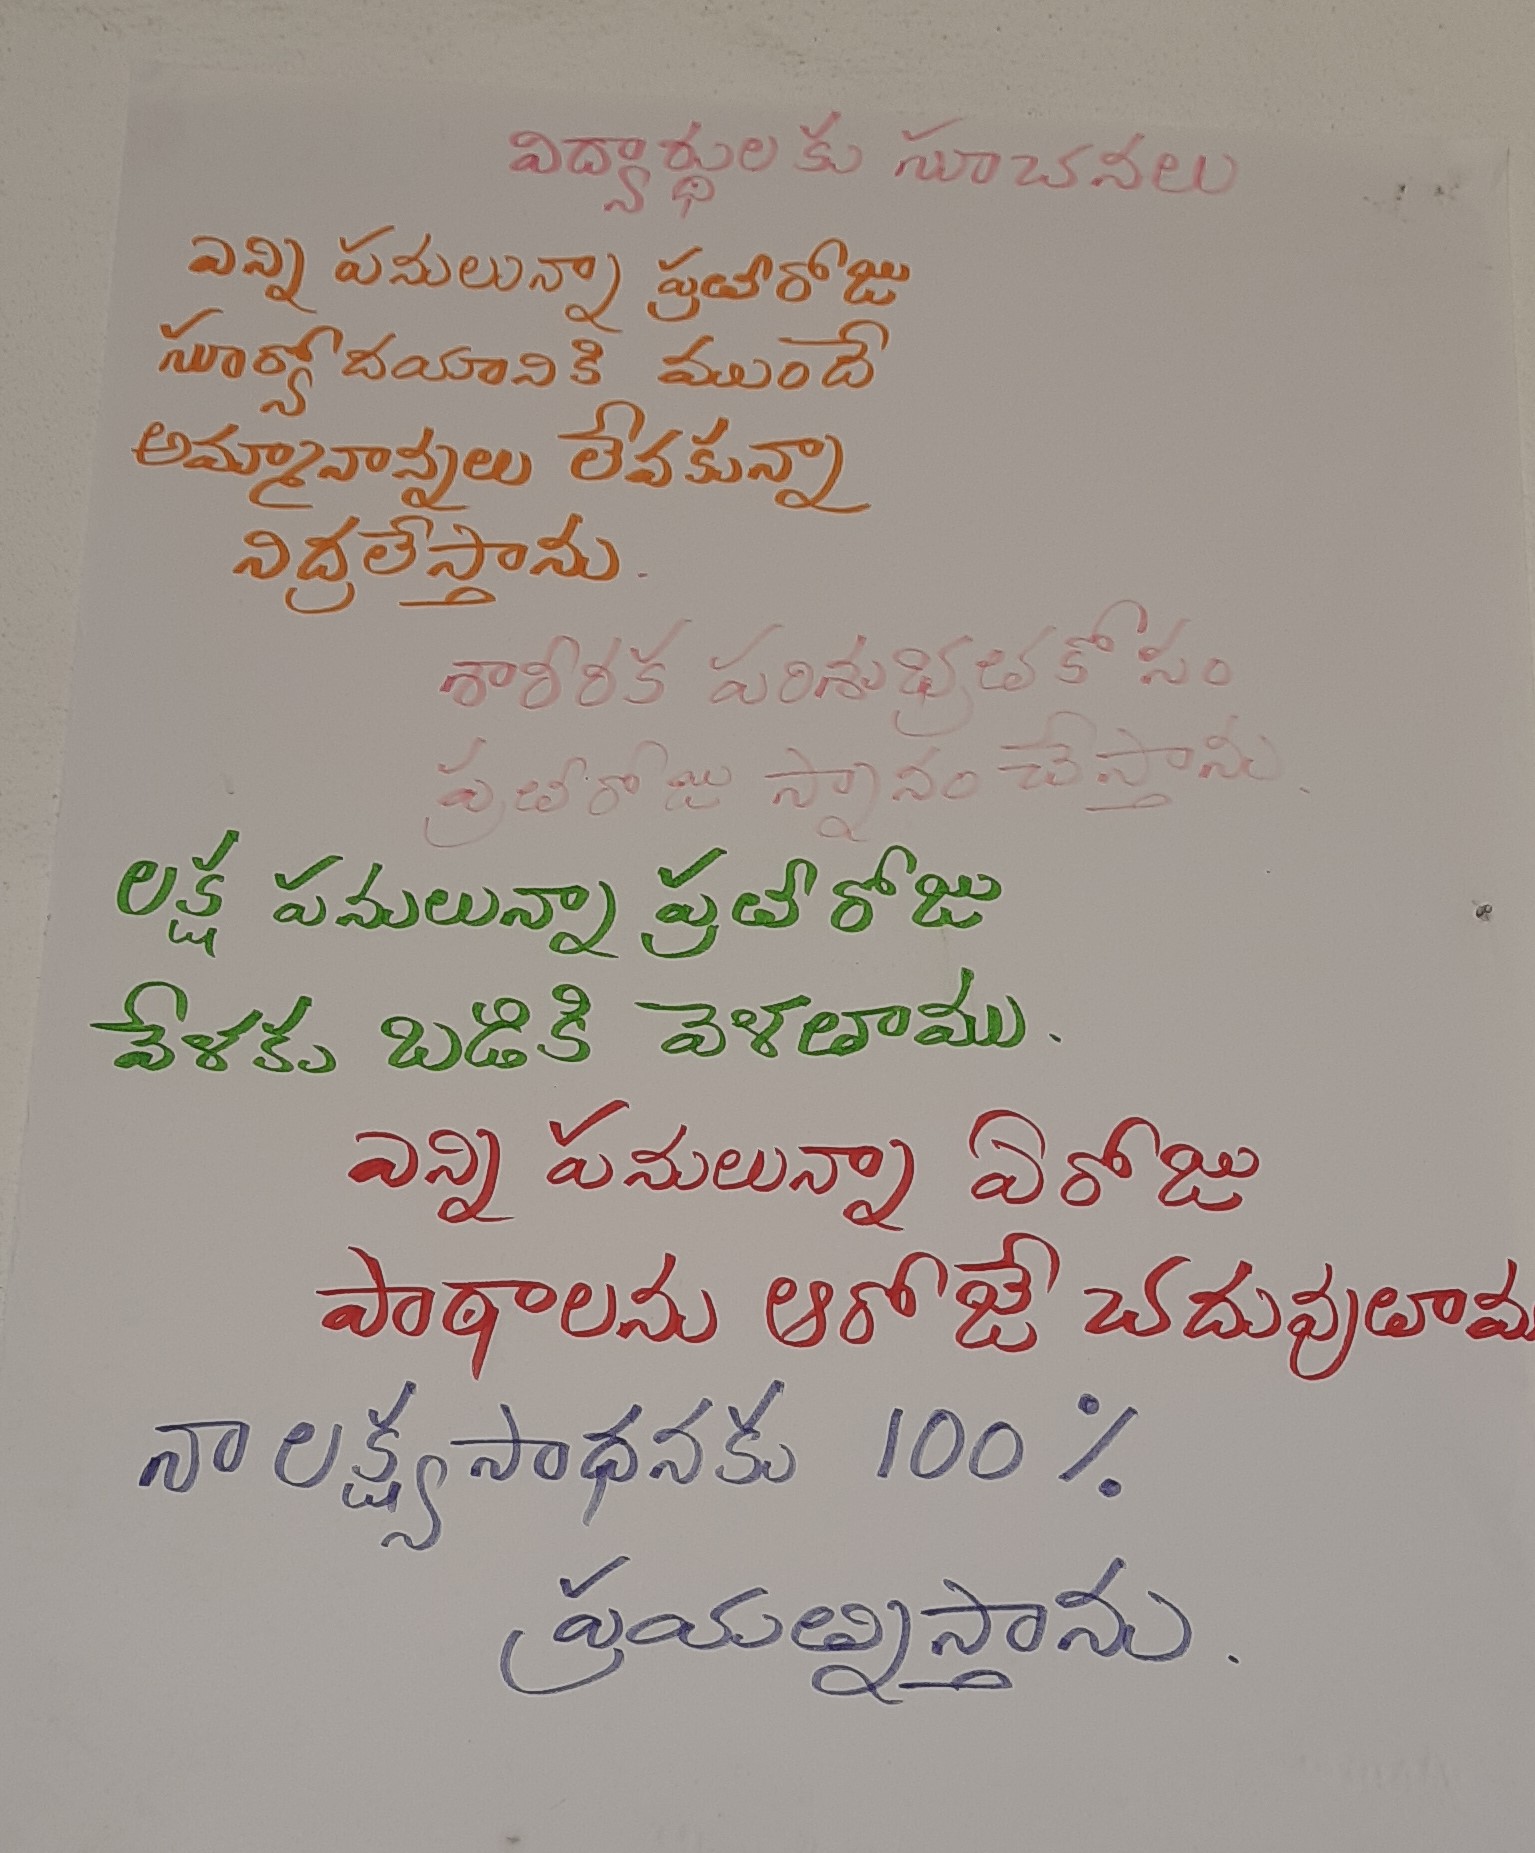 విద్యార్థులకు సూచనలు
ఎన్ని పనులున్నా ప్రతీరోజు
సూర్యోదయానికి ముందే
అమ్మానాన్నలు లేవకున్నా
నిద్రలేస్తాను.
శారీరక పరిశుభ్రతకోసం
ప్రతీరోజు స్నానం చేస్తాను.
లక్ష పనులున్నా ప్రతీరోజు
వేళకు బడికి వెళతాము.
ఎన్ని పనులున్నా ఏరోజు
పాఠాలను ఆరోజే చదువుతాము
నా లక్ష్యసాధనకు 100%
ప్రయత్నిస్తాను.